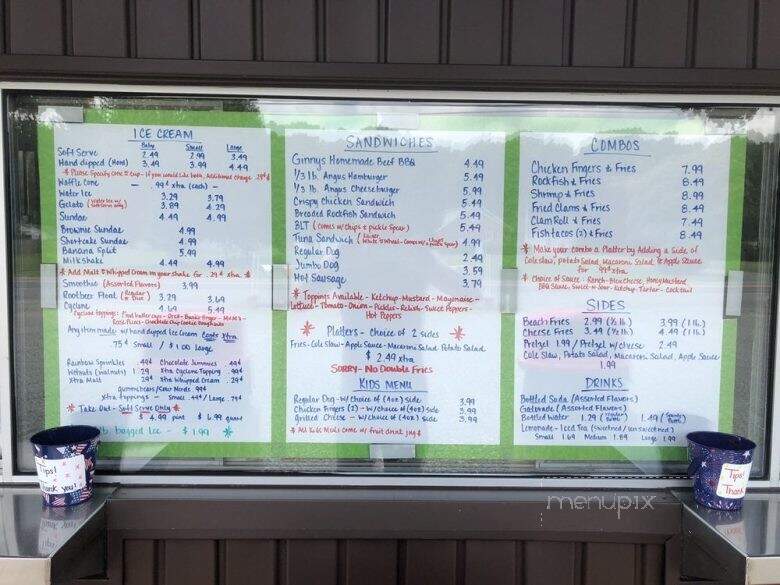 ICE CREAM
Baby Small Large
Soft Serve 2.49 2.99 3.49
Hand dipped (Hard) 3.49 3.99 4.49
* Please Specify Cone or Cup - if you would like both, Additional charge .29¢
Waffle Cone - .99¢ xtra (each) -
Water Ice 3.29 3.79
Gelato (Water Ice w/ Soft Serve only) 3.89 4.29
Sundae 4.49 4.99
Brownie Sundae 4.99
Shortcake Sundae 4.99
Banana Split 5.99
Milkshake 4.49 4.99
* Add Malt & Whipped Cream on your Shake for .29¢ xtra *
Smoothie (Assorted Flavors) 3.99
Rootbeer Float (Regular or Diet) 3.29 3.69
Cyclone 4.69 5.49
Cyclone toppings: Peanut butter cups - Oreo - Butterfinger - M&M's -
Reese Pieces - Chocolate Chip Cookie Dough
Any item made w/ hand dipped Ice Cream Costs Xtra
75¢ Small / $1.00 Large
Rainbow Sprinkles .49¢ Chocolate Jimmies .49¢
Wetnuts (walnuts) 1.29 Xtra Cyclone Topping .99¢
Xtra Malt .29¢ Xtra Whipped Cream .29¢
gummibears/Sour Nerds .99¢
Xtra toppings - Small .49¢ / Large .79¢
* Take Out - Soft Serve Only *
$ 4.99 pint $ 6.99 quart
lb. bagged Ice - $1.99 *
SANDWICHES
Ginnys Homemade Beef BBQ 4.49
1/3 lb. Angus Hamburger 5.49
1/3 lb. Angus Cheeseburger 5.99
Crispy Chicken Sandwich 5.49
Breaded Rockfish Sandwich 5.49
BLT (comes w/ chips & pickle Spear) 5.49
Tuna Sandwich 4.99
Regular Dog 2.49
Jumbo Dog 3.59
Hot Sausage 3.79
* Toppings Available - Ketchup - Mustard - Mayonaise -
Lettuce - Tomato - Onion - Pickles - Relish - Sweet Peppers -
Hot Peppers
* Platters - Choice of 2 sides *
Fries - Cole Slaw - Apple Sauce - Macaroni Salad - Potato Salad
$ 2.49 xtra
Sorry - No Double Fries
KIDS MENU
Regular Dog - w/ choice of (4oz) side 3.99
Chicken Fingers (2) - w/ choice of (4oz) side 3.99
Grilled Cheese - w/ choice of (4oz) side 3.99
* All Kids Meals come w/ fruit drink jug *
COMBOS
Chicken Fingers & Fries 7.99
Rockfish & Fries 8.49
Shrimp & Fries 8.99
Fried Clams & Fries 8.49
Clam Roll & Fries 7.49
Fish tacos (2) & Fries 8.49
* Make your Combo a Platter by Adding a Side of
Coleslaw, Potato Salad, Macaroni Salad, Apple Sauce
for .99¢ xtra
* Choice of Sauce - Ranch - Blue cheese, Honey Mustard
BBQ Sauce, Sweet-n-Sour - Ketchup - Tartar - Cocktail
SIDES
Beach Fries 2.99 (1/2 lb) 3.99 (1 lb.)
Cheese Fries 3.49 (1/2 lb) 4.49 (1 lb)
Pretzel 1.99 / Pretzel w/cheese 2.49
Cole Slaw, Potato Salad, Macaroni Salad, Apple Sauce
1.99
DRINKS
Bottled Soda (Assorted Flavors)
Gatorade (Assorted Flavors)
Bottled Water 1.29 1.49
Lemonade - Iced Tea (Sweetened / unsweetened)
Small 1.69 Medium 1.89 Large 1.99
Tips!
Thank you!
Tips!
Thank
menupix